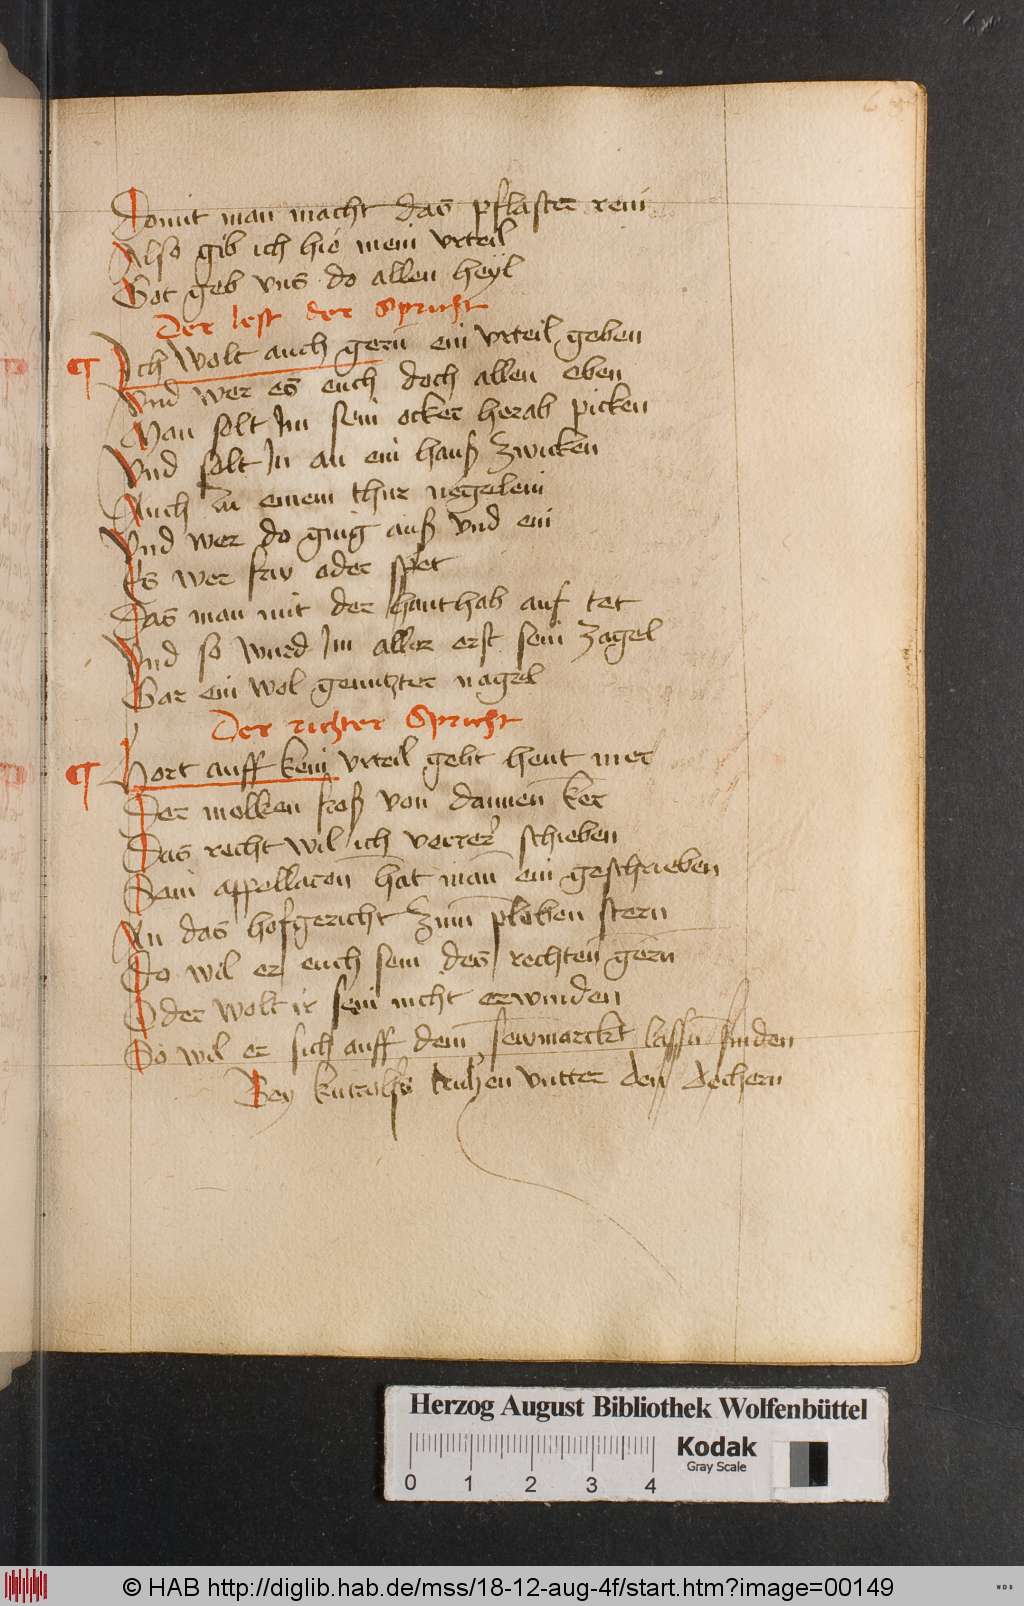 Domit man macht das pflaster rein
Also gib ich hie mein vrteil
Got geb vns do allen heyl
Der lest der Spricht
Ich wolt auch gern ein vrteil geben
Vnd wer es euch doch allen eben
Man solt Im sein ocker herab picken
Vnd solt In an ein hauß zwicken
Auch zu einem thur negelein
Vnd wer do ging auß vnd ein
Es wer fru oder spet
Das man mit der hanthab auf tet
Vnd so wurd Im aller erst sein zagel
Gar ein wol genutzter nagel
Der richter Spricht
Hort auff kein vrteil gebt heut mer
Der molken froß von dannen ker
Das recht wil ich verrer schieben
Sein appellacon hat man ein geschrieben
An das hofgericht zum ploben stern
Do wil er euch sein des rechten gern
Oder wolt ir sein nicht erwinden
So wil er sich auff dem sewmarckt lassn finden
Bey kutrolfs vntter den dechern
Herzog August Bibliothek Wolfenbüttel
Kodak
Gray Scale
0 1 2 3 4
© HAB http://diglib.hab.de/mss/18-12-aug-4f/start.htm?image=00149